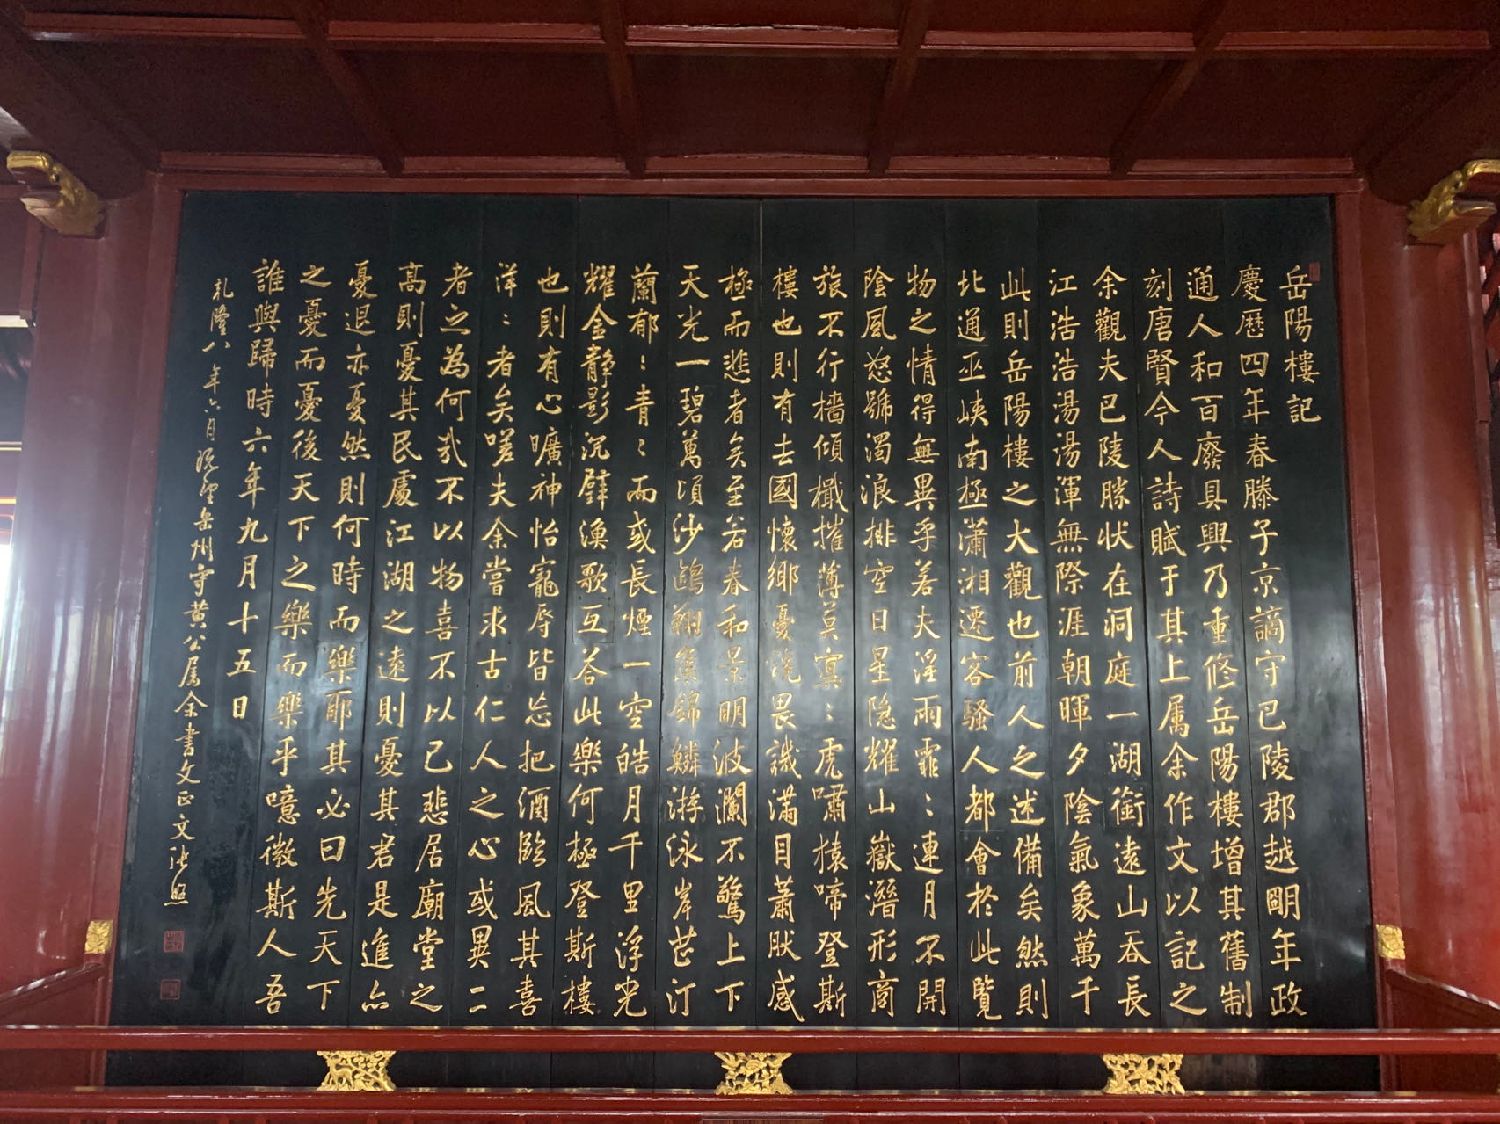 岳陽樓記
慶曆四年春滕子京謫守巴陵郡越明年政
通人和百廢具興乃重修岳陽樓增其舊制
刻唐賢今人詩賦于其上属余作文以記之
余觀夫巴陵勝状在洞庭一湖銜遠山吞長
江浩浩湯湯渾無際涯朝暉夕陰氣象萬千
此則岳陽樓之大觀也前人之述備矣然則
北通巫峽南極瀟湘遷客騷人都會於此覽
物之情得無異乎若夫淫雨霏〻連月不開
陰風怒號濁浪排空日星隐耀山嶽潛形商
旅不行檣傾檝摧薄莫冥〻虎嘯猿啼登斯
樓也則有去國懷鄉憂讒畏譏滿目蕭然感
極而悲者矣至若春和景明波瀾不驚上下
天光一碧萬頃沙鷗翔集錦鱗游泳岸芷汀
蘭郁〻青〻而或長煙一空皓月千里浮光
耀金静影沉璧漁歌互荅此樂何極登斯樓
也則有心曠神怡寵辱皆忘把酒臨風其喜
洋〻者矣嗟夫余嘗求古仁人之心或異二
者之為何哉不以物喜不以己悲居廟堂之
高則憂其民處江湖之遠則憂其君是進亦
憂退亦憂然則何時而樂耶其必曰先天下
之憂而憂後天下之樂而樂乎噫微斯人吾
誰與歸時六年九月十五日
乾隆八年六月既望岳州守黄公属余書文正文張照